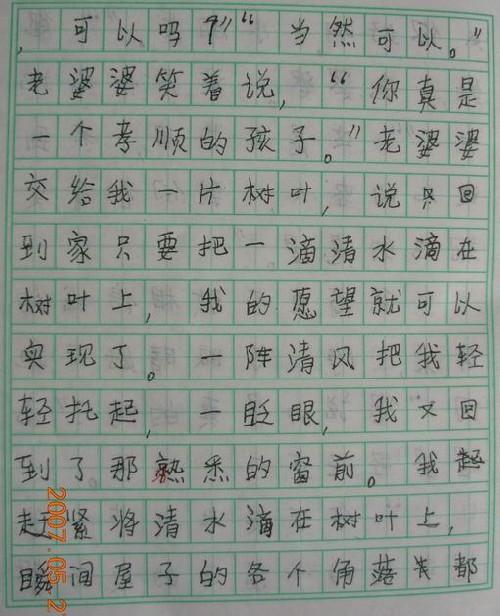 ，可以吗？”“当然可以。”
老婆婆笑着说，“你真是
一个孝顺的孩子。”老婆婆
交给我一片树叶，说只回
到家只要把一滴清水滴在
树叶上，我的愿望就可以
实现了。一阵清风把我轻
轻托起，一眨眼，我又回
到了那熟悉的窗前。我起
赶紧将清水滴在树叶上，
瞬间屋子的各个角落失都
2007.05.2